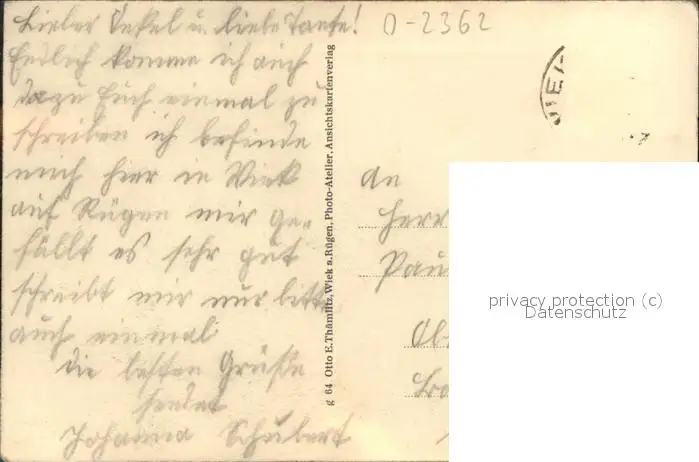 Lieber Onkel u. liebe Tante!
Endlich komme ich auch
dazu Euch einmal zu
schreiben ich befinde
mich hier in Wiek
auf Rügen mir ge-
fällt es sehr gut
schreibt mir nur bitte
auch einmal
die besten Grüße
sendet
Johanna Schubert
g 64 Otto E. Thämlitz, Wiek a. Rügen, Photo-Atelier, Ansichtskartenverlag
0-2362
WIEK
An
Herr
Pau
Ob
privacy protection (c)
Datenschutz